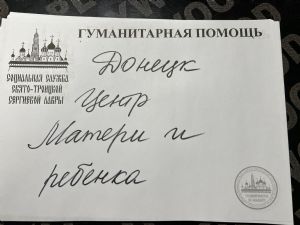 ГУМАНИТАРНАЯ ПОМОЩЬ
СОЦИАЛЬНАЯ СЛУЖБА
СВЯТО-ТРОИЦКОЙ
СЕРГИЕВОЙ ЛАВРЫ
Донецк
Центр
Матери и
ребенка